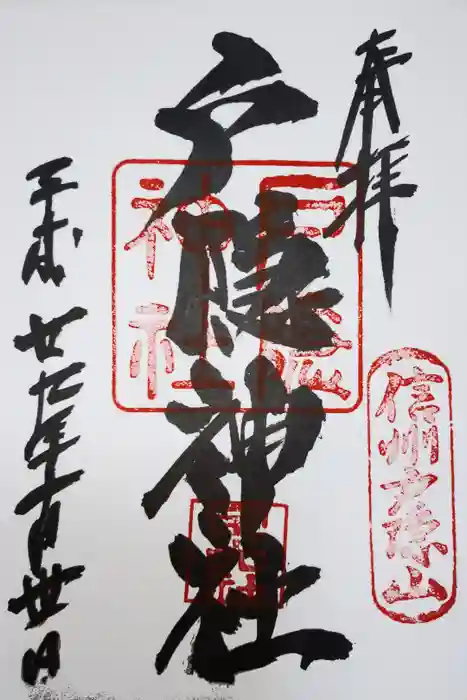 奉拝
戸隠神社
信州戸隠山
戸隠
神社
平成廿九年十月卅日